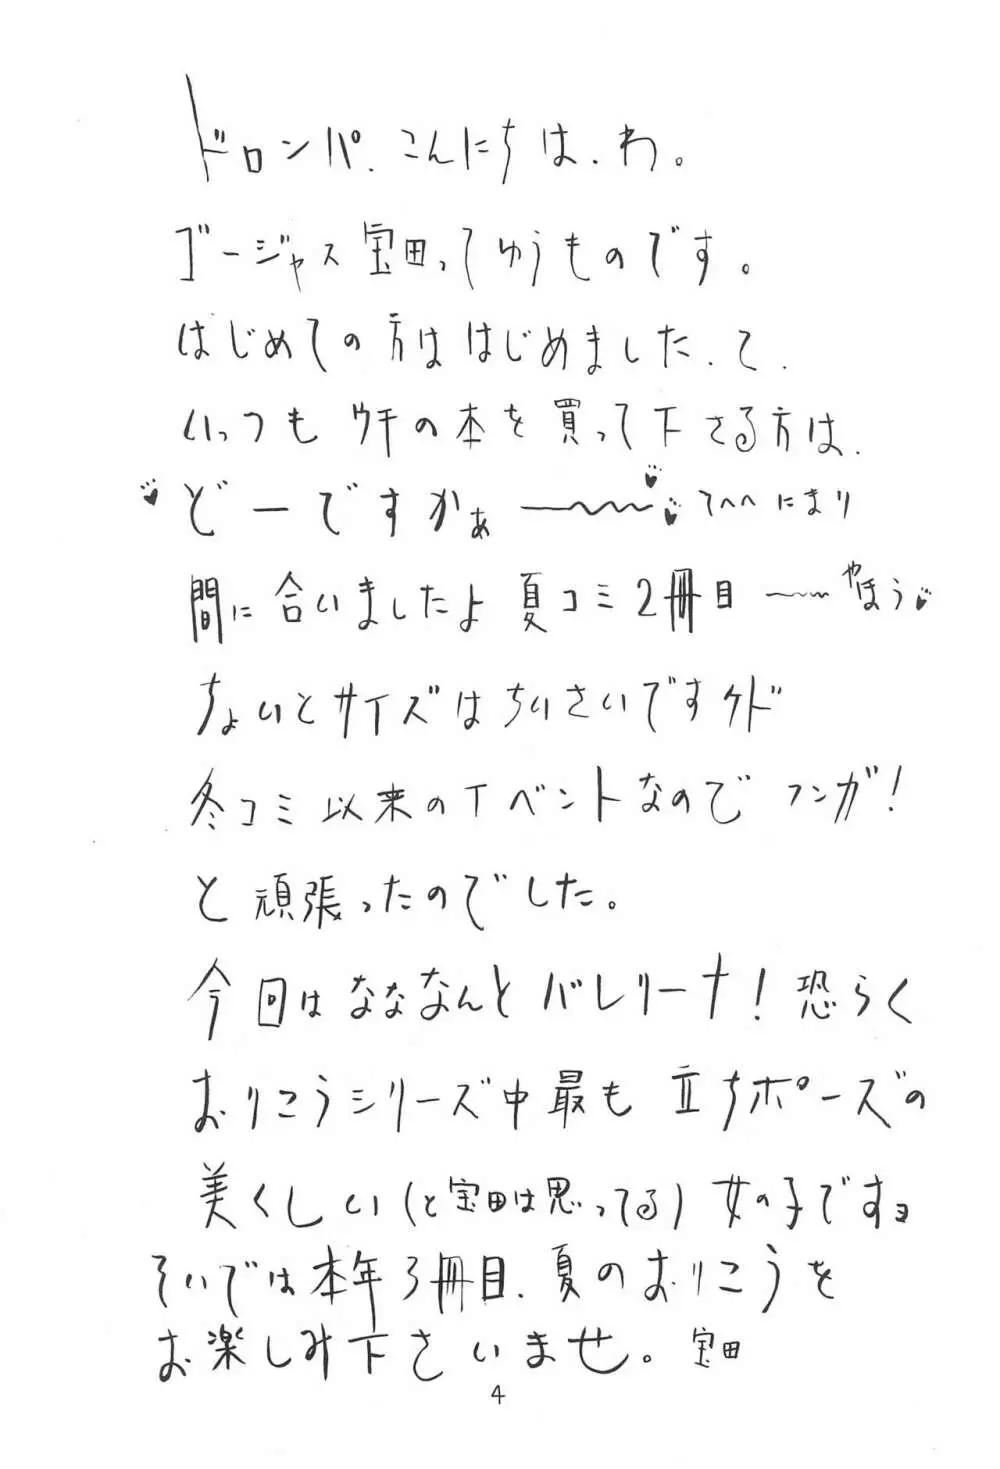 ドロンパ.こんにちは、わ。
ゴージャス宝田ってゆうものです。
はじめての方ははじめました、て、
いっつもウチの本を買って下さる方は、
どーですかぁ――〜〜〜 てへへ にまり
間に合いましたよ夏コミ2冊目―〜〜 やほう
ちょいとサイズはちいさいですケド
冬コミ以来のイベントなのでフンガ!
と頑張ったのでした。
今回はなななんとバレリーナ!恐らく
おりこうシリーズ中最も立ちポーズの
美くしい(と宝田は思ってる)女の子ですョ
そいでは本年3冊目、夏のおりこうを
お楽しみ下さいませ。宝田
4